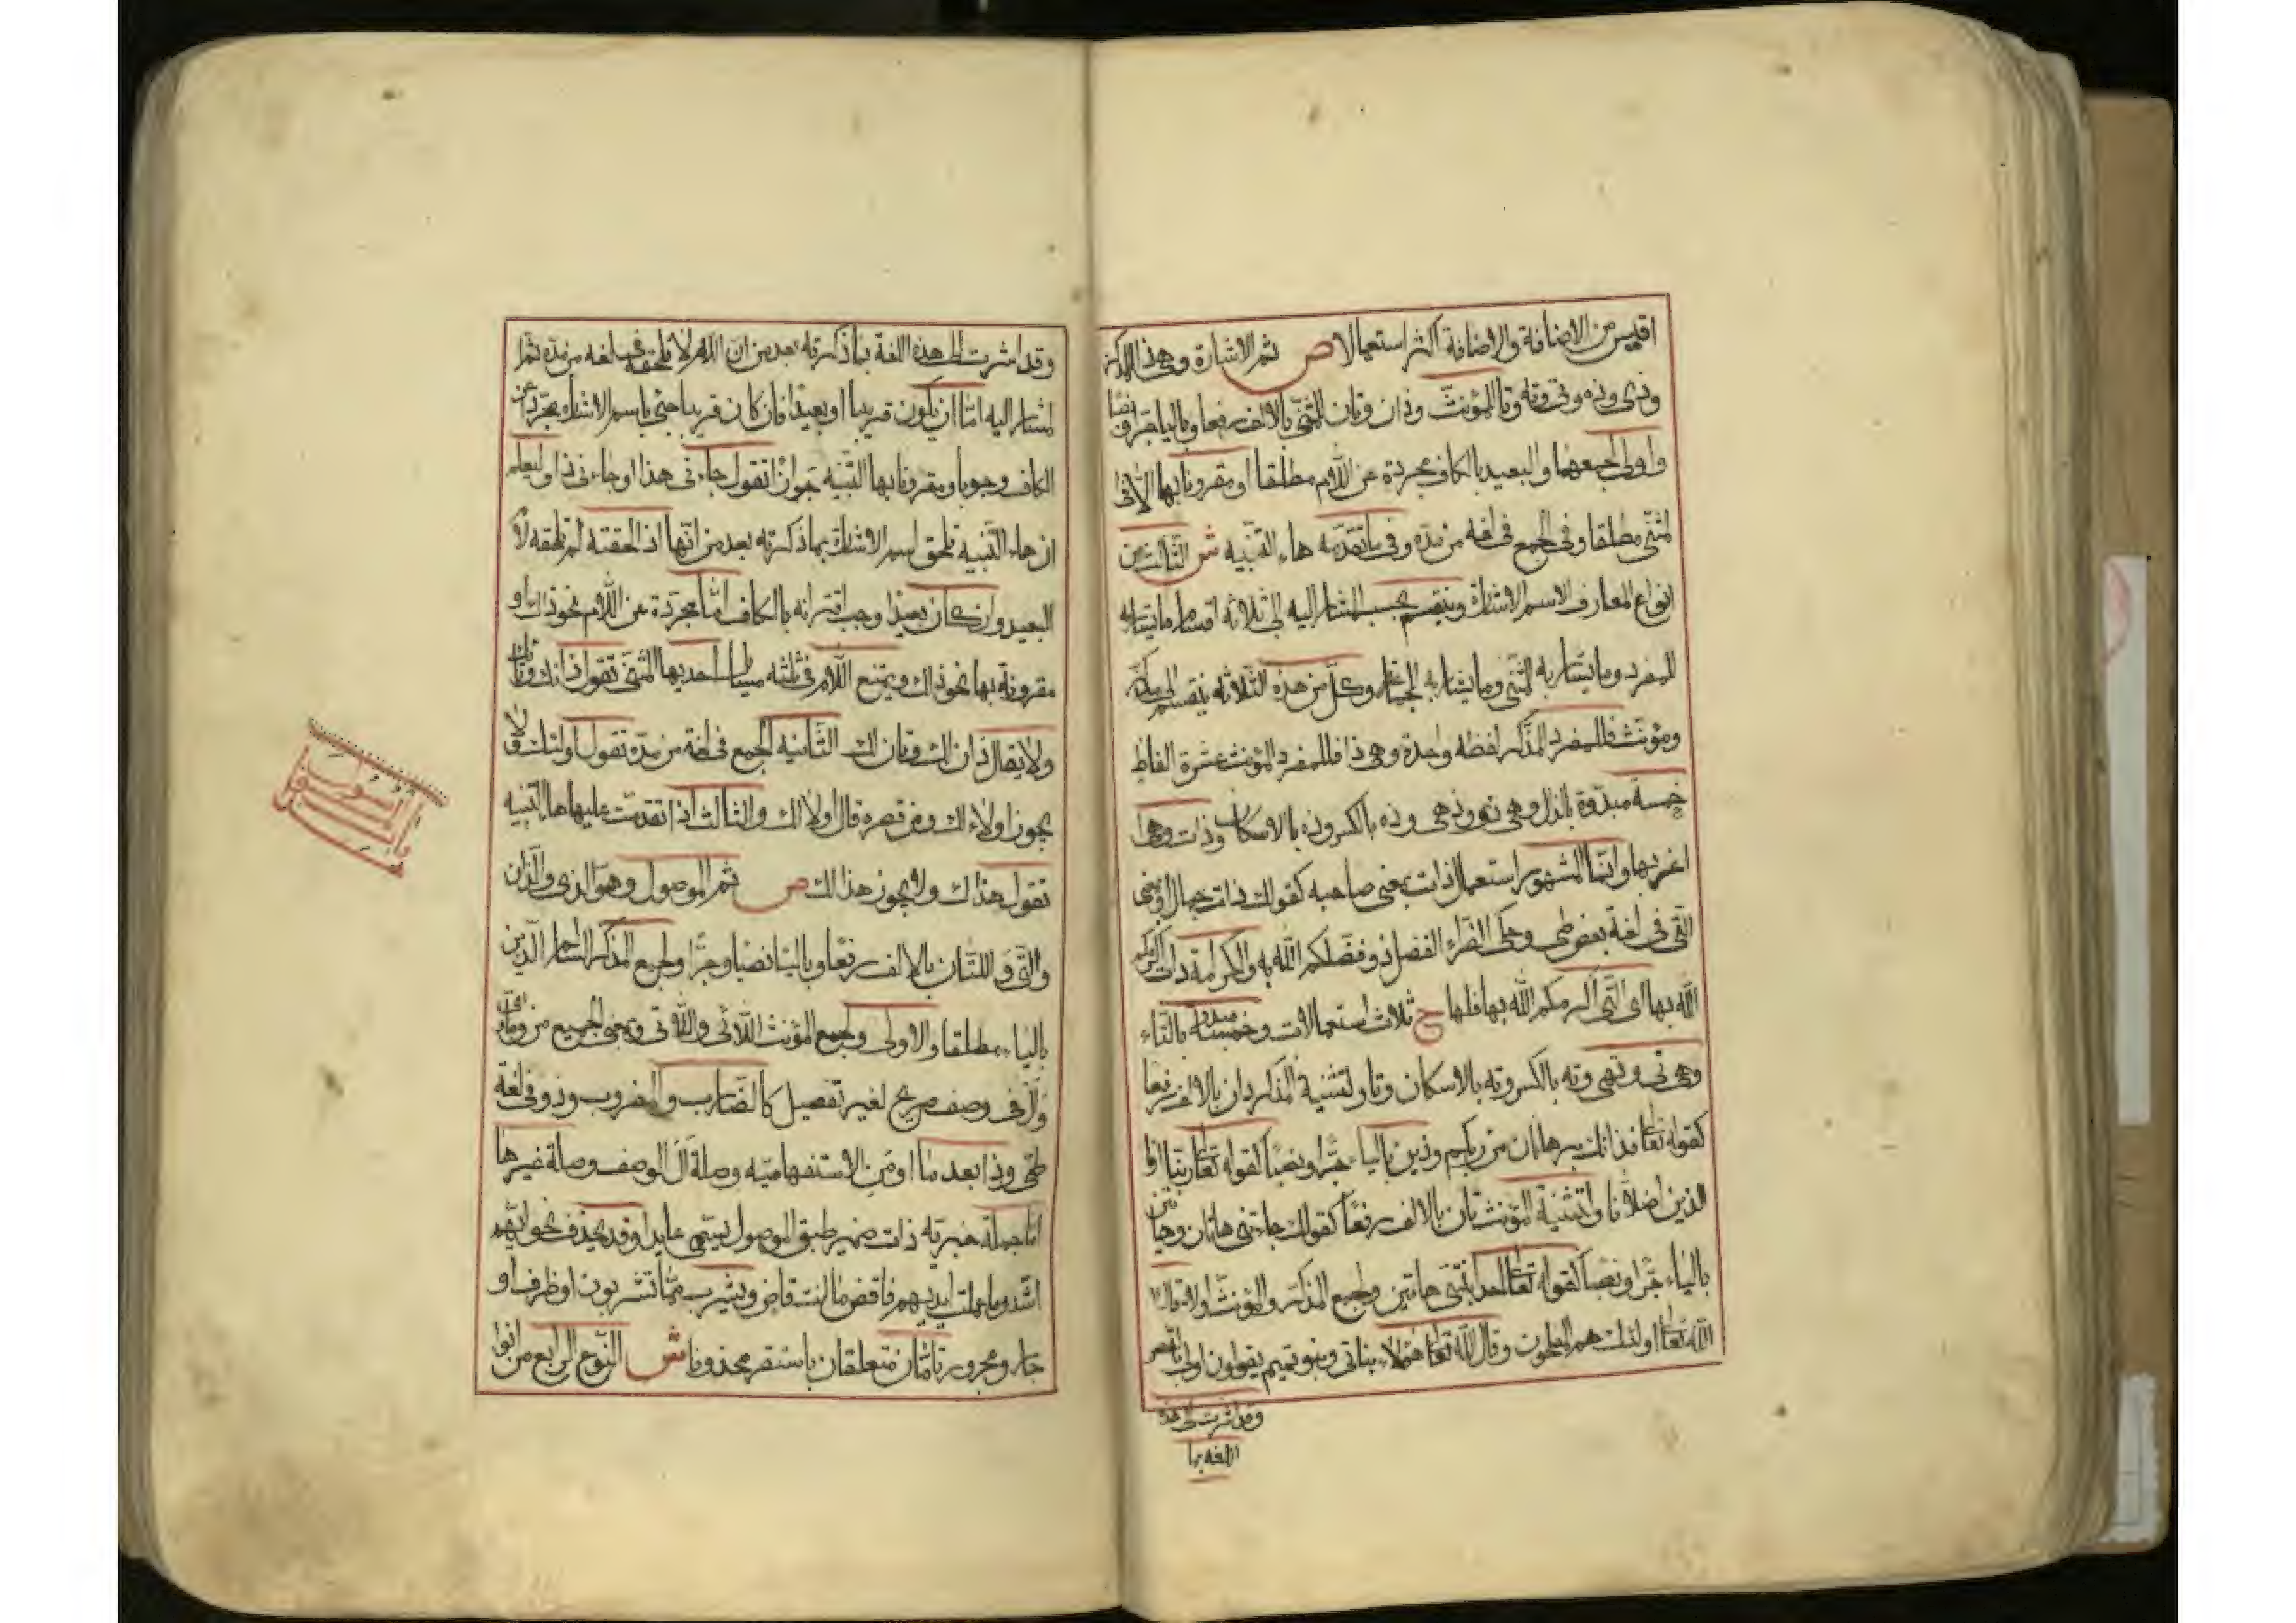 اقيس من الاضافة والاضافة اكثر استعمالا ص ثم الاشارة وهى ذا للمذكر
وذى وذه وتى وته وتا للمؤنث وذان وتان للمثنى بالالف رفعا وبالياء جرا ونصبا
واولى لجمعهما والبعيد بالكاف مجردة عن اللام مطلقا او مقرونا بها الا فى
المثنى مطلقا وفى الجمع فى لغة من مده وفى ما تقدمه هاء التنبيه ش الثالث من
انواع المعارف الاسم الاشارة وينقسم بحسب المشار اليه الى ثلاثة اقسام ما يشار به
للمفرد وما يشار به للمثنى وما يشار به للجماعة وكل من هذه الثلاثة ينقسم الى مذكر
ومؤنث فللمفرد المذكر لفظة واحدة وهى ذا فللمفرد المؤنث عشرة الفاظ
خمسة مبدوة بالذال وهى ذى وذهى وذه بالكسر وذه بالاسكان وذات وهى
اغربها وانما المشهور استعمال ذات بمعنى صاحبه كقولك ذات جمال او بمعنى
التى فى لغة بعض طى وحكى الفراء الفضل ذو فضلكم الله به والكرامة ذات اكرمكم
الله بها اى التى اكرمكم الله بها فلها ح ثلاث استعمالات وخمسة مبدوة بالتاء
وهى تى وتهى وته بالكسر وته بالاسكان وتا ولتثنية المذكر ذان بالالف رفعا
كقوله تعا فذانك برهانان من ربكم وذين بالياء جرا ونصبا كقوله تعا ربنا ارنا
الذين اضلانا ولتثنية المؤنث تان بالالف رفعا كقولك جاءتنى هاتان وهاتين
بالياء جرا ونصبا كقوله تعا احدى ابنتى هاتين ولجمع المذكر والمؤنث اولاء قال
الله تعا اولئك هم المفلحون وقال الله تعا هؤلاء بناتى وبنو تميم يقولون اولى بالقصر
وقد اشرت الى هذه
اللغة بما
وقد اشرت الى هذه اللغة بما ذكرته بعد من ان اللام لا تلحقه فى لغة من مده ثم
المشار اليه اما ان يكون قريبا او بعيدا فان كان قريبا جئ باسم الاشارة مجردا عن
الكاف وجوبا ومقرونا بها التنبيه جوازا تقول جاءنى هذا او جاءنى ذا وليعلم
ان هاء التنبيه تلحق اسم الاشارة بما ذكرته بعد من انها اذا لحقته لم تلحقه لام
البعيد وان كان بعيدا وجب اقترانه بالكاف اما مجردة عن اللام نحو ذاك او
مقرونة بها نحو ذلك ويمتنع اللام فى ثلثه مسائل احديها المثنى تقول ذانك وتانك
ولا يقال ذان لك وتان لك الثانيه الجمع فى لغة من مده تقول اولئك ولا
يجوز اولاء لك ومن قصره قال اولالك والثالث اذا تقدمت عليها ها التنبيه
تقول هذاك ولا يجوز هذالك ص ثم الموصول وهو الذى والذان
والتى واللتان بالالف رفعا وبالياء نصبا وجرا ولجمع المذكر السالم الذين
بالياء مطلقا والاولى ولجمع المؤنث اللائى واللاتى وبمعنى الجميع من وما واى
وال فى وصف صريح لغير تفضيل كالضارب والمضروب وذو فى لغة
طى وذا بعد ما او من الاستفهاميه وصلة ال الوصف وصلة غيرها
اما جملة خبريه ذات ضمير طبق الموصول يسمى عايدا وقد يحذف نحو ايهم
اشد وما عملت ايديهم فاقض ما انت قاض ويشرب مما تشربون او ظرف او
جار ومجرور تامان متعلقان باستقر محذوفا ش النوع الرابع من انوا